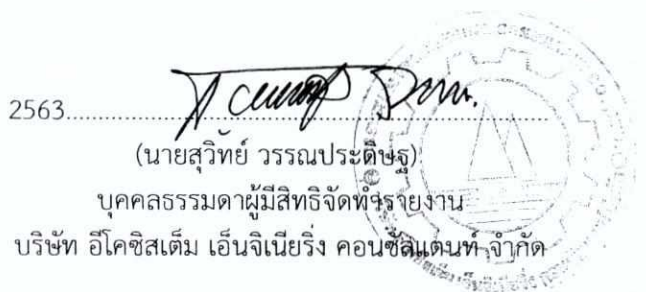 2563
(นายสุวิทย์ วรรณประดิษฐ)
บุคคลธรรมดาผู้มีสิทธิจัดทำรายงาน
บริษัท อีโคซิสเต็ม เอ็นจิเนียริ่ง คอนซัลแตนท์ จำกัด